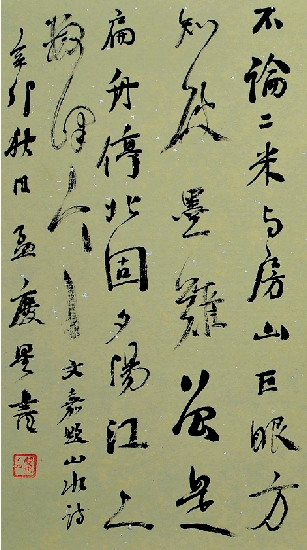 不論二米与房山巨眼方
知墨難最是
扁舟停北固夕陽江上
文嘉題山水詩
辛卯秋月孟慶星書